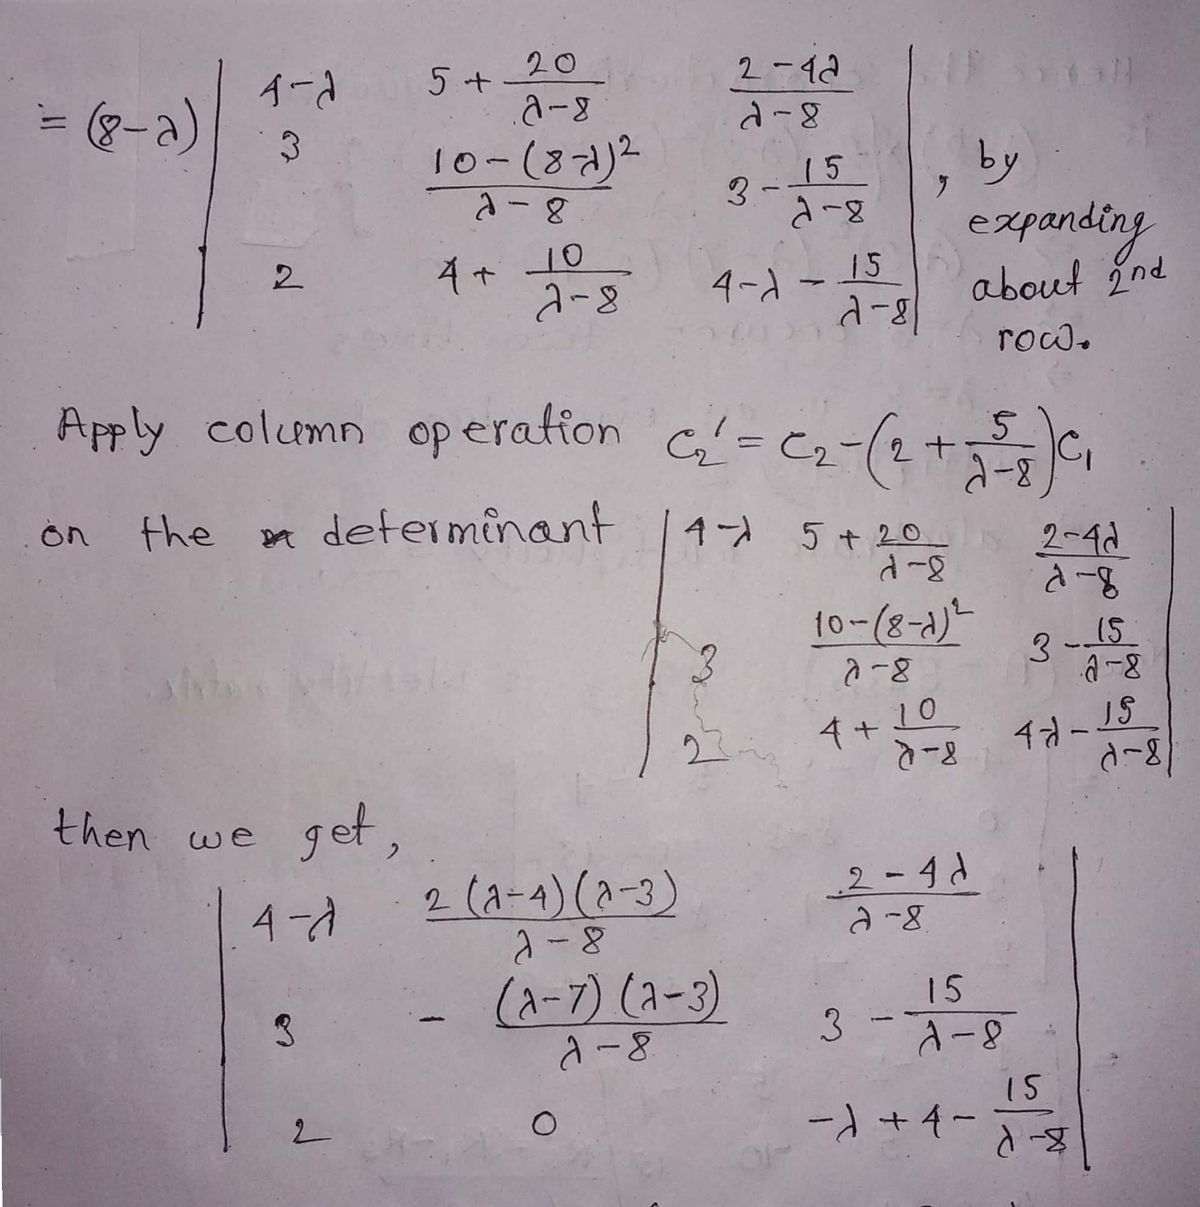 = (8-λ) | 4-λ   5 + 20/(λ-8)   (2-4λ)/(λ-8) |
| 3   (10-(8-λ)²)/(λ-8)   3 - 15/(λ-8) | , by
| 2   4 + 10/(λ-8)   4-λ - 15/(λ-8) | expanding
about 2nd
row.
Apply column operation C₂' = C₂ - (2 + 5/(λ-8)) C₁
on the determinant | 4-λ   5 + 20/(λ-8)   (2-4λ)/(λ-8) |
| 3   (10-(8-λ)²)/(λ-8)   3 - 15/(λ-8) |
| 2   4 + 10/(λ-8)   4-λ - 15/(λ-8) |
then we get,
| 4-λ   2(λ-4)(λ-3)/(λ-8)   (2-4λ)/(λ-8) |
| 3   - (λ-7)(λ-3)/(λ-8)   3 - 15/(λ-8) |
| 2   0   -λ+4 - 15/(λ-8) |